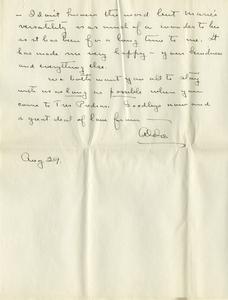 – I don't know the word but Marie's
versatility was much of a wonder to he
as it has been for a long time to me. It
has made me very happy – your kindness
and everything else.
We both want you all to stay
with us as long as possible when you
come to Tres Piedras. Goodbye now and
a great deal of love from –
Aug 29.